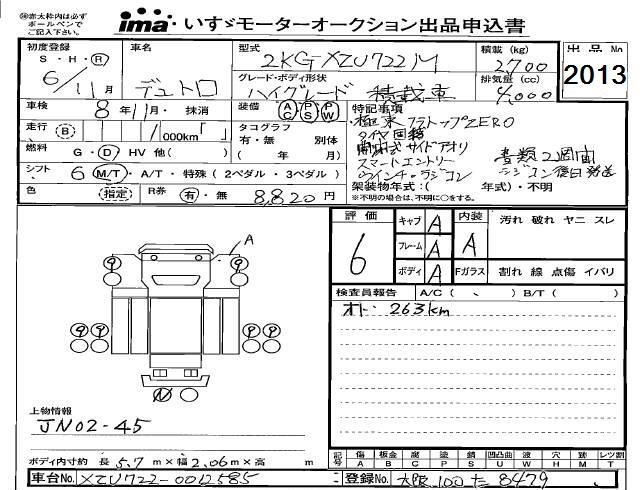 ※赤太枠内は必ず
ボールペンで
ご記入下さい。
ima いすゞモーターオークション出品申込書
出品No
2013
初度登録 S・H・R 6/11月
車名 デュトロ
型式 2KG-XZU722M
積載 (kg) 2,700
グレード・ボディ形状 ハイグレード 積載車
排気量 (cc) 4,000
車検 8年11月・抹消
装備 AC PS PW
走行 B ,000km「 」
タコグラフ 有・無 別体 ( 年 月)
燃料 G・D HV 他( )
シフト 6 M/T・A/T・特殊(2ペダル・3ペダル)
色 指定
R券 有・無 8,820円
特記事項
極東 フラトップZERO
開閉式サイドアオリ
スマートエントリー
ウインチ・ラジコン
書類2週間
ラジコン後日発送
架装物年式:( 年式)・不明
※不明の場合は、不明に○をする。
評価 6
キャブ A
フレーム A
ボディ A
内装 A
Fガラス
汚れ 破れ ヤニ スレ
割れ 線 点傷 イバリ
検査員報告 A/C( 、 ) B/T( )
オド・263km
A
9 9
9 9 9 9
N
上物情報
JN02-45
ボディ内寸約 長 5.7 m×幅 2.06 m×高 m
記号 傷 板金 腐 塗 錆 凹凸曲 波 穴 跡 レツ割
A B C P S U W H M T
車台No. XZU722-0012585
登録No. 大阪 100 た 8479